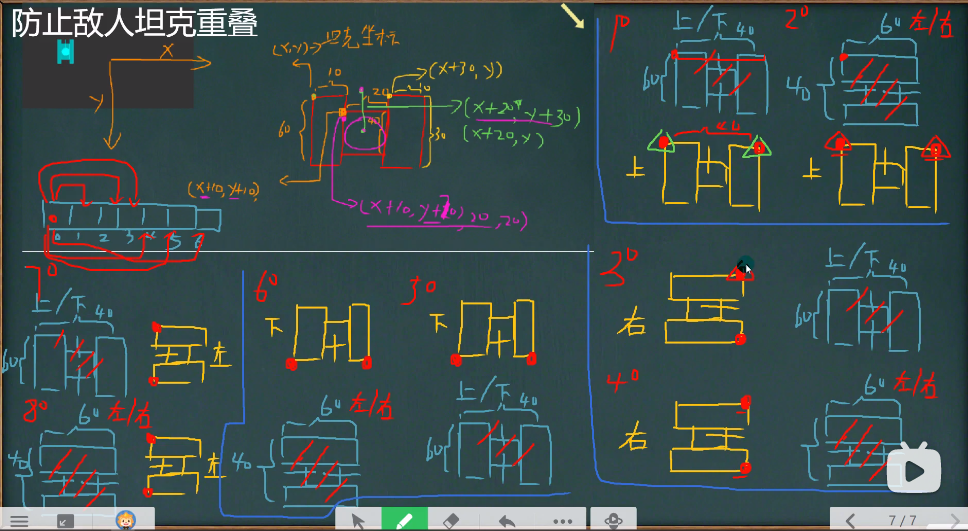 防止敌人坦克重叠
X
Y
(x,y)→坦克坐标
10
20
10
(x+30,y)
60
40
30
(x+20,y+30)
(x+20,y)
(x+10,y+10)
(x+10,y+10,20,20)
0 1 2 3 4 5 6
1°
上/下 40
60
上
2°
60 左/右
40
上
3°
右
上/下 40
60
4°
右
60 左/右
7°
上/下 40
60
左
8°
60 左/右
40
左
6°
下
60 左/右
40
3°
下
上/下 40
60
7/7